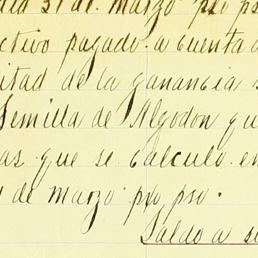 dia 31 de. Marzo pxo ps
ctivo pagado a cuenta d
itad de la ganancia s
Semilla de Algodon qu
as que se calculo en
de marzo pxo pso.
Saldo a s